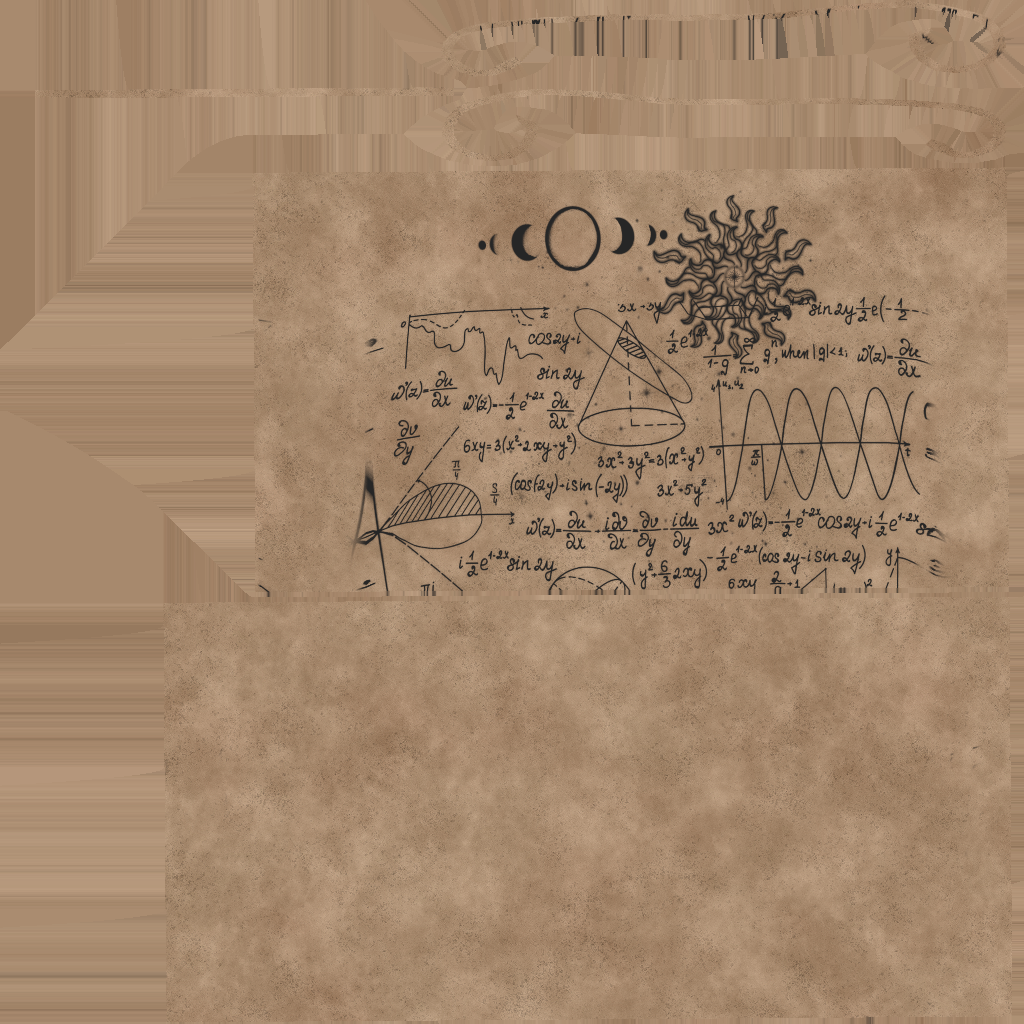 3x+3y
sin 2y 1/2 e(-1/2
0 x
cos2y-i
1/2 e^1-2x
1/1-g ∑ n=0 ∞ g^n, when |g|<1; w'(z)=∂u/∂x
sin 2y
w'(z)=∂u/∂x w'(z)=-1/2 e^1-2x ∂u/∂x
u₁,u₂
∂v/∂y
6xy=3(x²+2xy+y²)
0 t
π/4
3x²+3y²=3(x²+y²)
5/4
(cos(2y)+isin(-2y)) 3x²+5y²
w'(z)=∂u/∂x+i∂v/∂x=∂v/∂y-i∂u/∂y 3x² w'(z)=-1/2 e^1-2x cos2y-i 1/2 e^1-2x
i 1/2 e^1-2x sin 2y -1/2 e^1-2x(cos 2y-i sin 2y) y
(y²+6/3 2xy) 6xy
πi